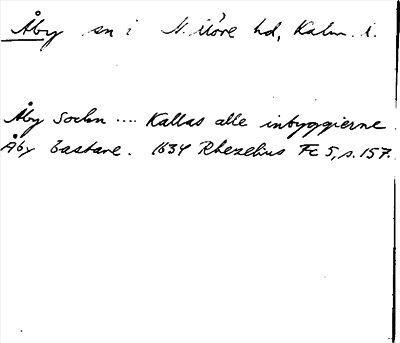 Åby sn i N. Möre hd, Kalm. l.
Åby Sochn .... Kallas alle inbyggierne
Åby bastare. 1634 Rhezelius Fc 5, s. 157.